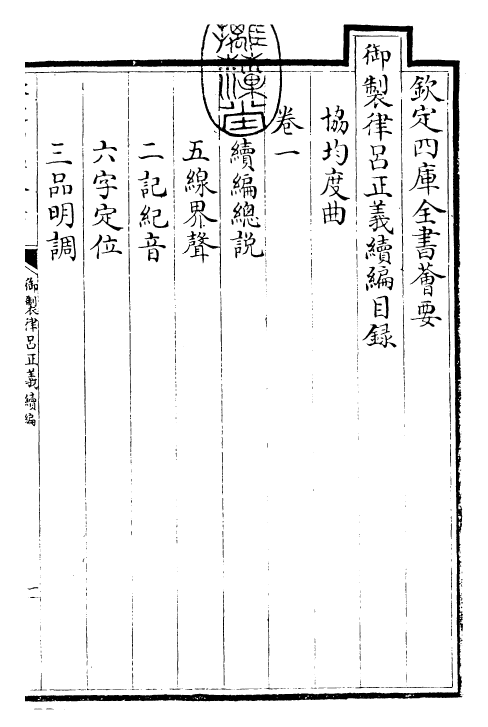 欽定四庫全書薈要
御製律呂正義續編目錄
協均度曲
卷一
續編總說
五線界聲
二記紀音
六字定位
三品明調
御製律呂正義續編
一